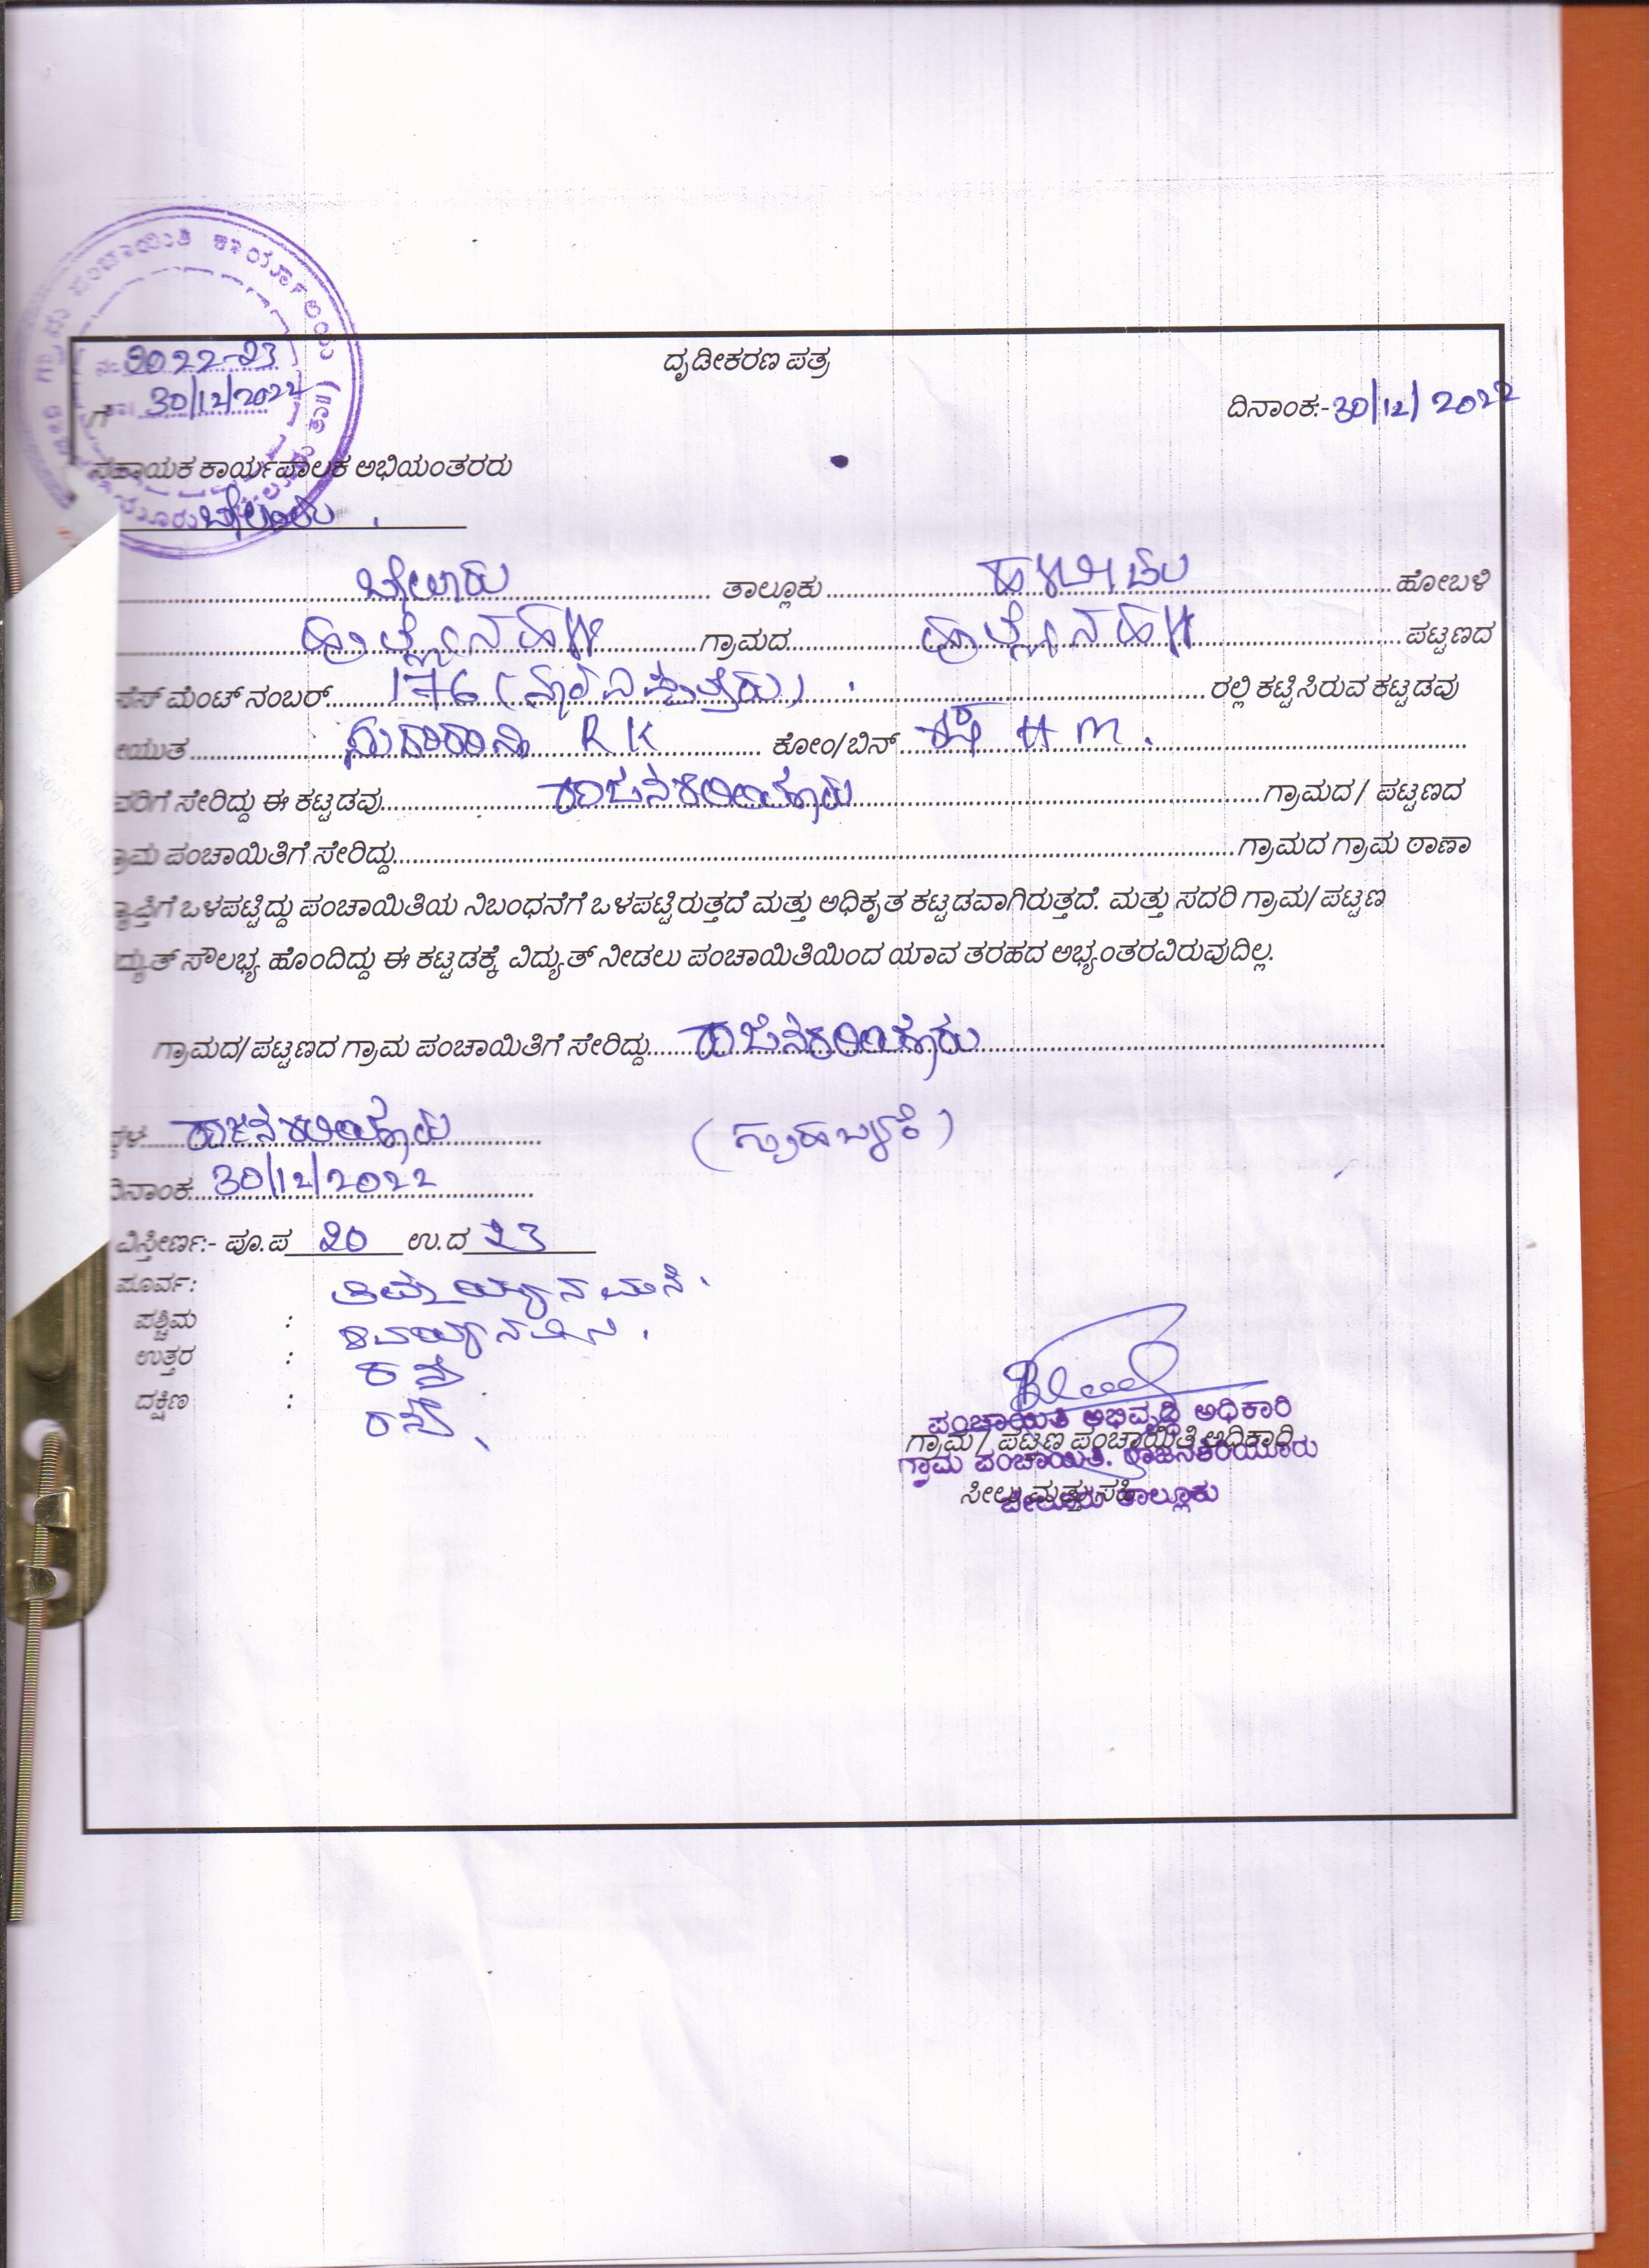 ಗ್ರಾಮ ಪಂಚಾಯಿತಿ ಕಾರ್ಯಾಲಯ
ನಂ: 2022-23
ದೃಢೀಕರಣ ಪತ್ರ
ಗೆ 30/12/2022
ದಿನಾಂಕ:-30/12/2022
ಸಹಾಯಕ ಕಾರ್ಯಪಾಲಕ ಅಭಿಯಂತರರು
ಬೇಲೂರು.
ಬೇಲೂರು ತಾಲ್ಲೂಕು ಹಳೇಬೀಡು ಹೋಬಳಿ
ಗ್ರಾಮದ ಪಟ್ಟಣದ
ಸೆಸ್ ಮೆಂಟ್ ನಂಬರ್ 176 ರಲ್ಲಿ ಕಟ್ಟಿಸಿರುವ ಕಟ್ಟಡವು
ಯುತ R K ಕೋಂ/ಬಿನ್ H M.
ವರಿಗೆ ಸೇರಿದ್ದು ಈ ಕಟ್ಟಡವು ರಾಜನಶಿರಿಯೂರು ಗ್ರಾಮದ / ಪಟ್ಟಣದ
ಗ್ರಾಮ ಪಂಚಾಯಿತಿಗೆ ಸೇರಿದ್ದು ಗ್ರಾಮದ ಗ್ರಾಮ ಠಾಣಾ
ವ್ಯಾಪ್ತಿಗೆ ಒಳಪಟ್ಟಿದ್ದು ಪಂಚಾಯಿತಿಯ ನಿಬಂಧನೆಗೆ ಒಳಪಟ್ಟಿರುತ್ತದೆ ಮತ್ತು ಅಧಿಕೃತ ಕಟ್ಟಡವಾಗಿರುತ್ತದೆ. ಮತ್ತು ಸದರಿ ಗ್ರಾಮ/ ಪಟ್ಟಣ
ದ್ಯುತ್ ಸೌಲಭ್ಯ ಹೊಂದಿದ್ದು ಈ ಕಟ್ಟಡಕ್ಕೆ ವಿದ್ಯುತ್ ನೀಡಲು ಪಂಚಾಯಿತಿಯಿಂದ ಯಾವ ತರಹದ ಅಭ್ಯಂತರವಿರುವುದಿಲ್ಲ.
ಗ್ರಾಮದ/ ಪಟ್ಟಣದ ಗ್ರಾಮ ಪಂಚಾಯಿತಿಗೆ ಸೇರಿದ್ದು ರಾಜನಶಿರಿಯೂರು
ಸ್ಥಳ ರಾಜನಶಿರಿಯೂರು
ದಿನಾಂಕ 30/12/2022
ವಿಸ್ತೀರ್ಣ:- ಪೂ.ಪ 20 ಉ.ದ 23
ಪೂರ್ವ: ತಿಮ್ಮಯ್ಯನ ಮನೆ.
ಪಶ್ಚಿಮ :
ಉತ್ತರ : ರಸ್ತೆ
ದಕ್ಷಿಣ : ರಸ್ತೆ.
ಪಂಚಾಯಿತಿ ಅಭಿವೃದ್ಧಿ ಅಧಿಕಾರಿ
ಗ್ರಾಮ / ಪಟ್ಟಣ ಪಂಚಾಯಿತಿ ಅಧಿಕಾರಿ
ಗ್ರಾಮ ಪಂಚಾಯಿತಿ. ರಾಜನಶಿರಿಯೂರು
ಸೀಲು ಮತ್ತು ಸಹಿ
ಬೇಲೂರು ತಾಲ್ಲೂಕು